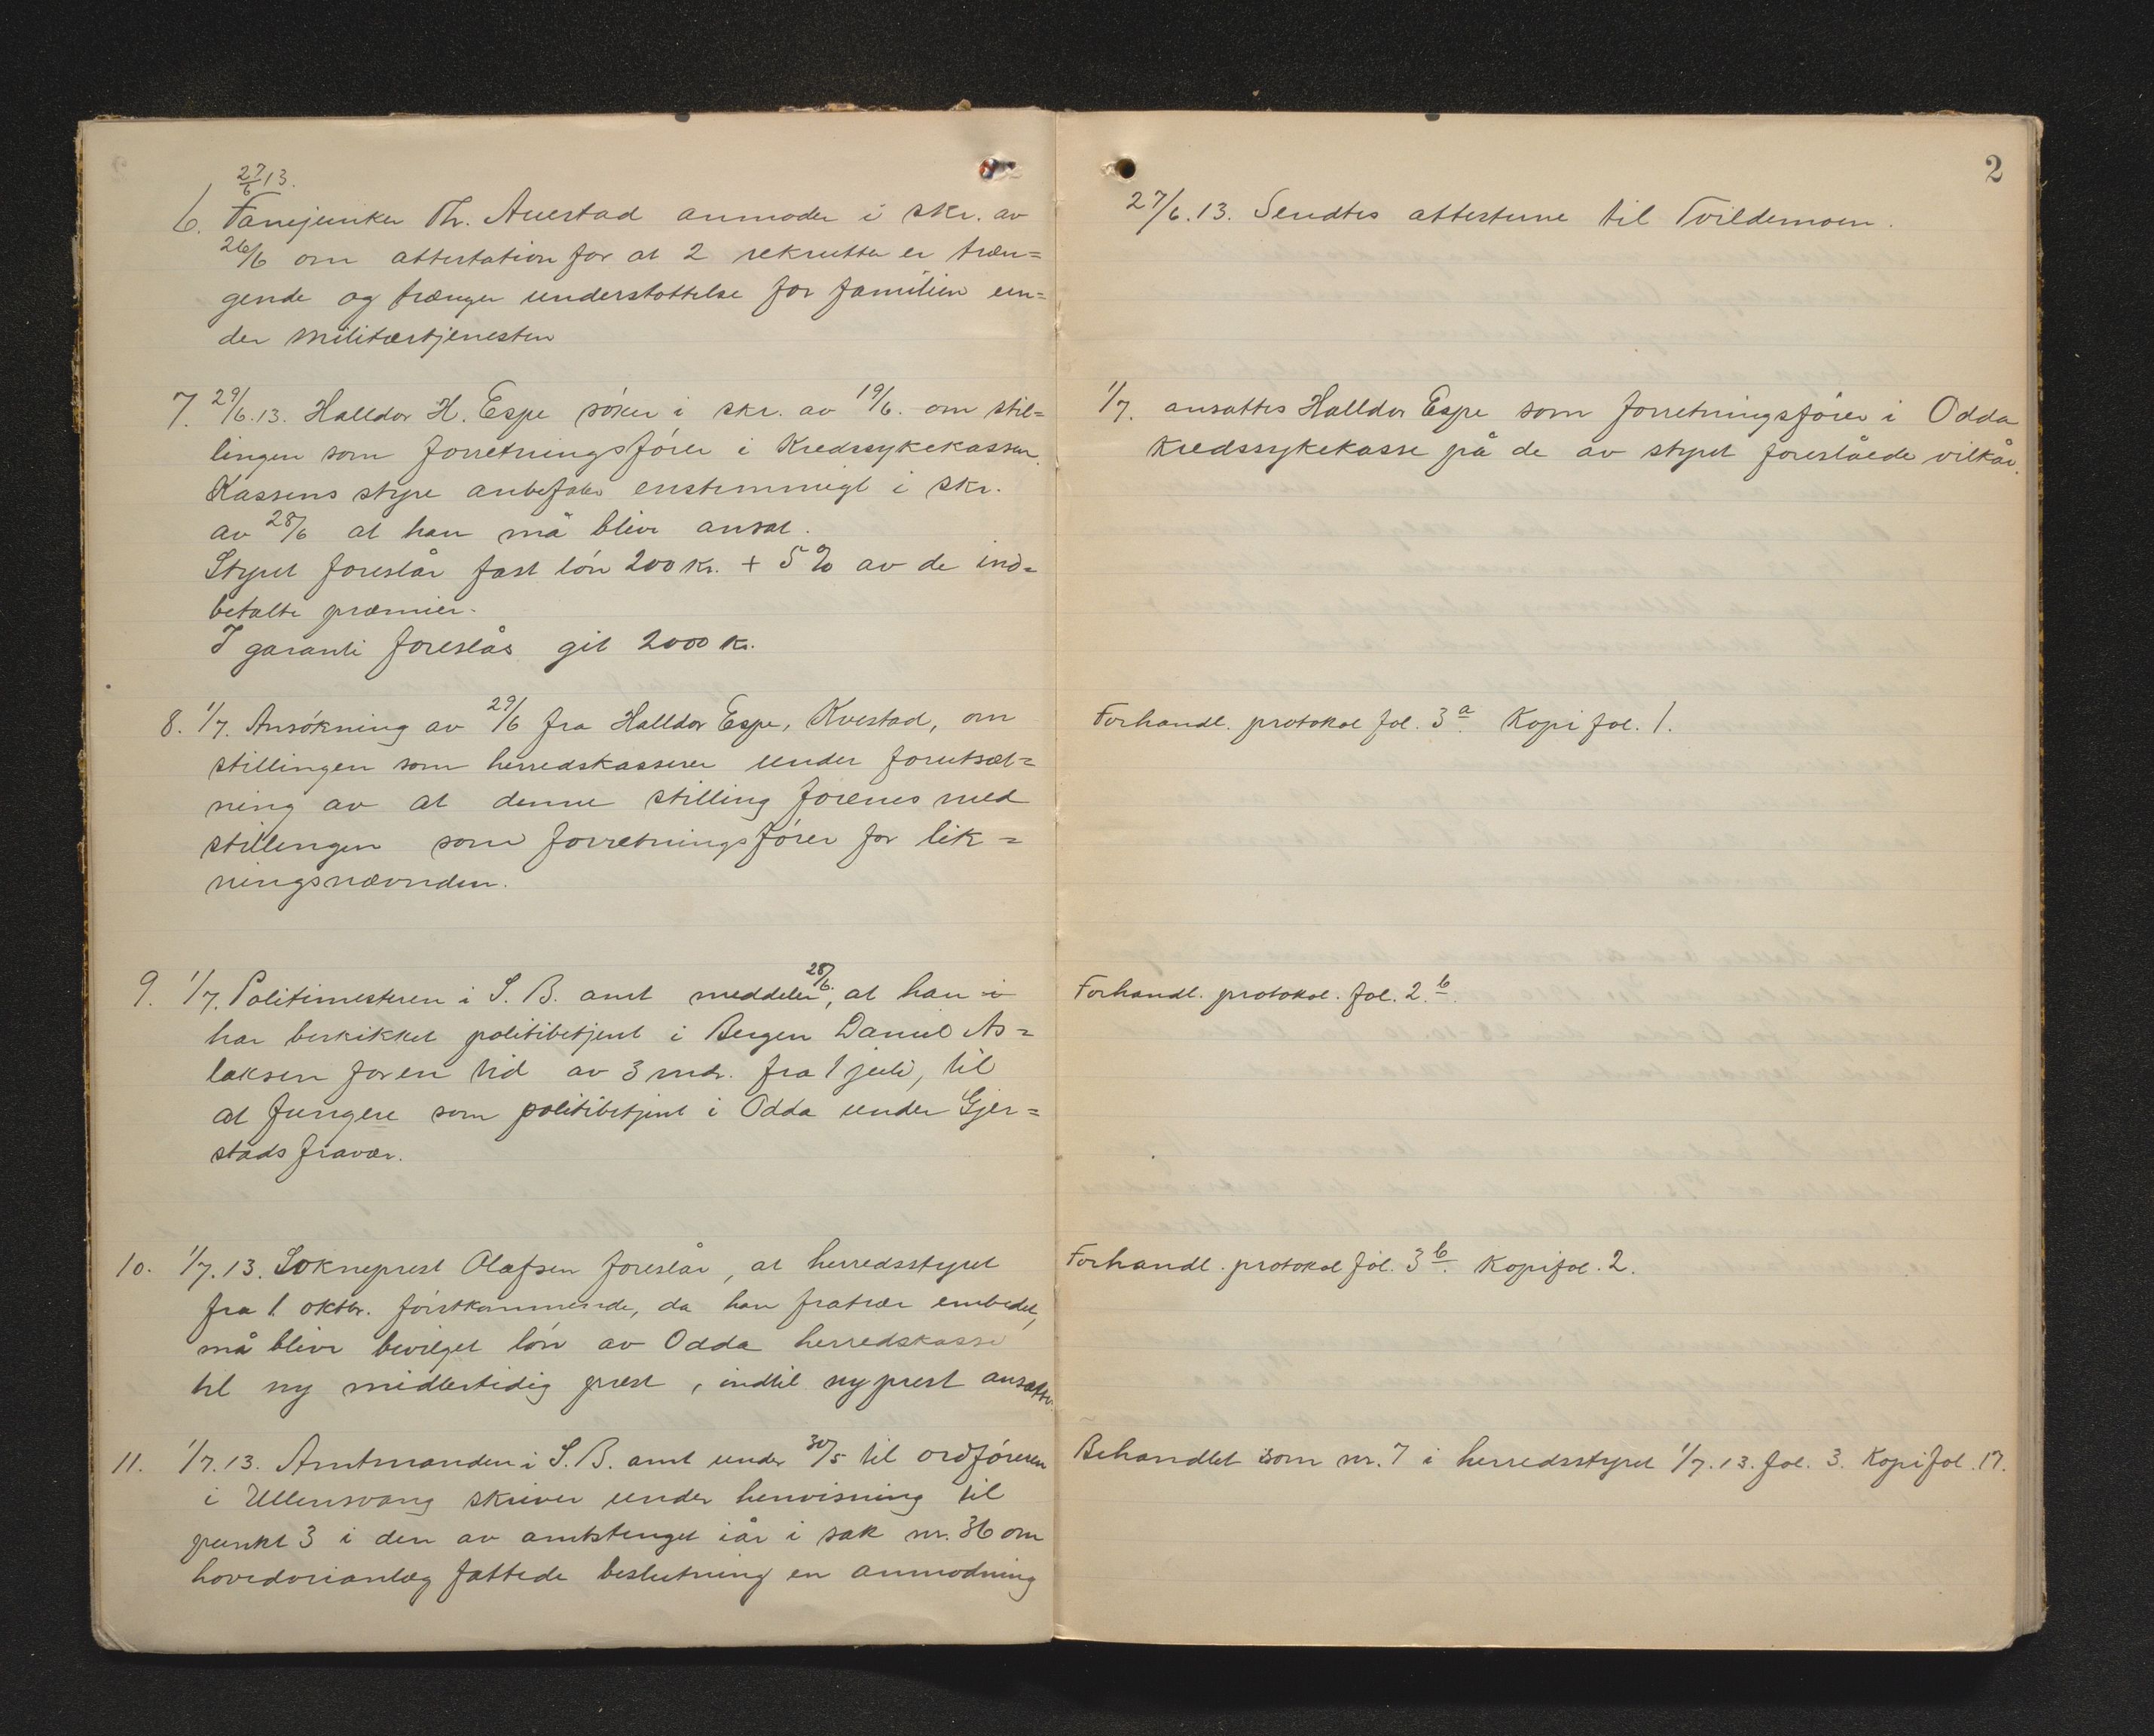 27/6 13.
6. Fanejunker Th. Auestad anmoder i skr. av
26/6 om attestation for at 2 rekrutter er træn=
gende og trænger understøttelse for familien un=
der militærtjenesten
7. 29/6.13. Halldor H. Espe søker i skr. av 19/6. om stil=
lingen som forretningsfører i Kredssykekassen.
Kassens styre anbefaler enstemmigt i skr.
av 28/6 at han må blive ansat.
Styret foreslår fast løn 200 kr. + 5 % av de ind=
betalte præmier.
I garanti foreslås git 2000 kr.
8. 1/7. Ansøkning av 29/6 fra Halldor Espe, Kvestad, om
stillingen som herredskasserer under forutsæt=
ning av at denne stilling forenes med
stillingen som forretningsfører for lik=
ningsnævnden.
9. 1/7. Politimesteren i S. B. amt meddeler 28/6, at han i
har beskikket politibetjent i Bergen Daniel As=
laksen for en tid av 3 mdr. fra 1 juli, til
at fungere som politibetjent i Odda under Gjer=
stads fravær.
10. 1/7.13. Sokneprest Olafsen foreslår, at herredsstyret
fra 1. oktbr. førstkommende, da han fratrær embedet,
må blive bevilget løn av Odda herredskasse
til ny midlertidig prest, indtil ny prest ansættes.
11. 1/7.13. Amtmanden i S. B. amt under 30/5 til ordføreren
i Ullensvang skriver under henvisning til
punkt 3 i den av amtstinget iår i sak nr. 36 om
hovedveianlæg fattede beslutning en anmodning
2
27/6.13. Sendtes attesterne til Tvildemoen.
1/7. ansattes Halldor Espe som forretningsfører i Odda
Kredssykekasse på de av styret foreslåede vilkår.
Forhandl. protokol fol. 3 a. Kopi fol. 1.
Forhandl. protokol. fol. 2. b.
Forhandl. protokol fol. 3 b. Kopifol. 2.
Behandlet som nr. 7 i herredsstyret 1/7.13. fol. 3. Kopifol. 17.